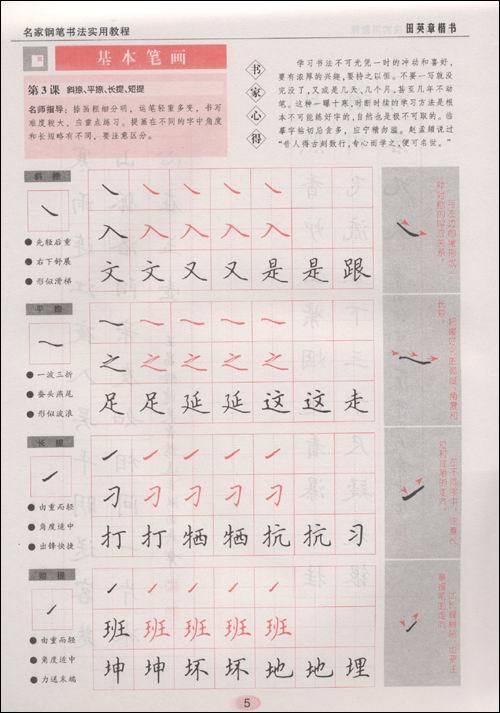 名家钢笔书法实用教程
田英章楷书
基本笔画
第3课 斜捺、平捺、长提、短提
名师指导：捺画粗细分明，运笔轻重多变，书写
难度较大，应重点练习。提画在不同的字中角度
和长短略有不同，要注意区分。
书家心得
学习书法不可光凭一时的冲动和喜好，
要有浓厚的兴趣，要持之以恒。不要一写就没
完没了，又或是几天、几个月，甚至几年不动
笔。这种一曝十寒、时断时续的学习方法是根
本不可能练好字的，自然也是极不可取的。临
摹字帖切忌贪多，应宁精勿滥。赵孟頫说过
“昔人得古刻数行，专心而学之，便可名世。”
斜捺
● 先轻后重
● 右下舒展
● 形似滑梯
入 入 入 入 入
文 文 又 又 是 是 跟
平捺
● 一波三折
● 蚕头燕尾
● 形似波浪
之 之 之 之 之
足 足 延 延 这 这 走
长提
● 由重而轻
● 角度适中
● 出锋快捷
刁 刁 刁 刁 刁
打 打 牺 牺 抗 抗 习
短提
● 由重而轻
● 角度适中
● 力送末端
班 班 班 班 班
坤 坤 坏 坏 地 地 埋
5